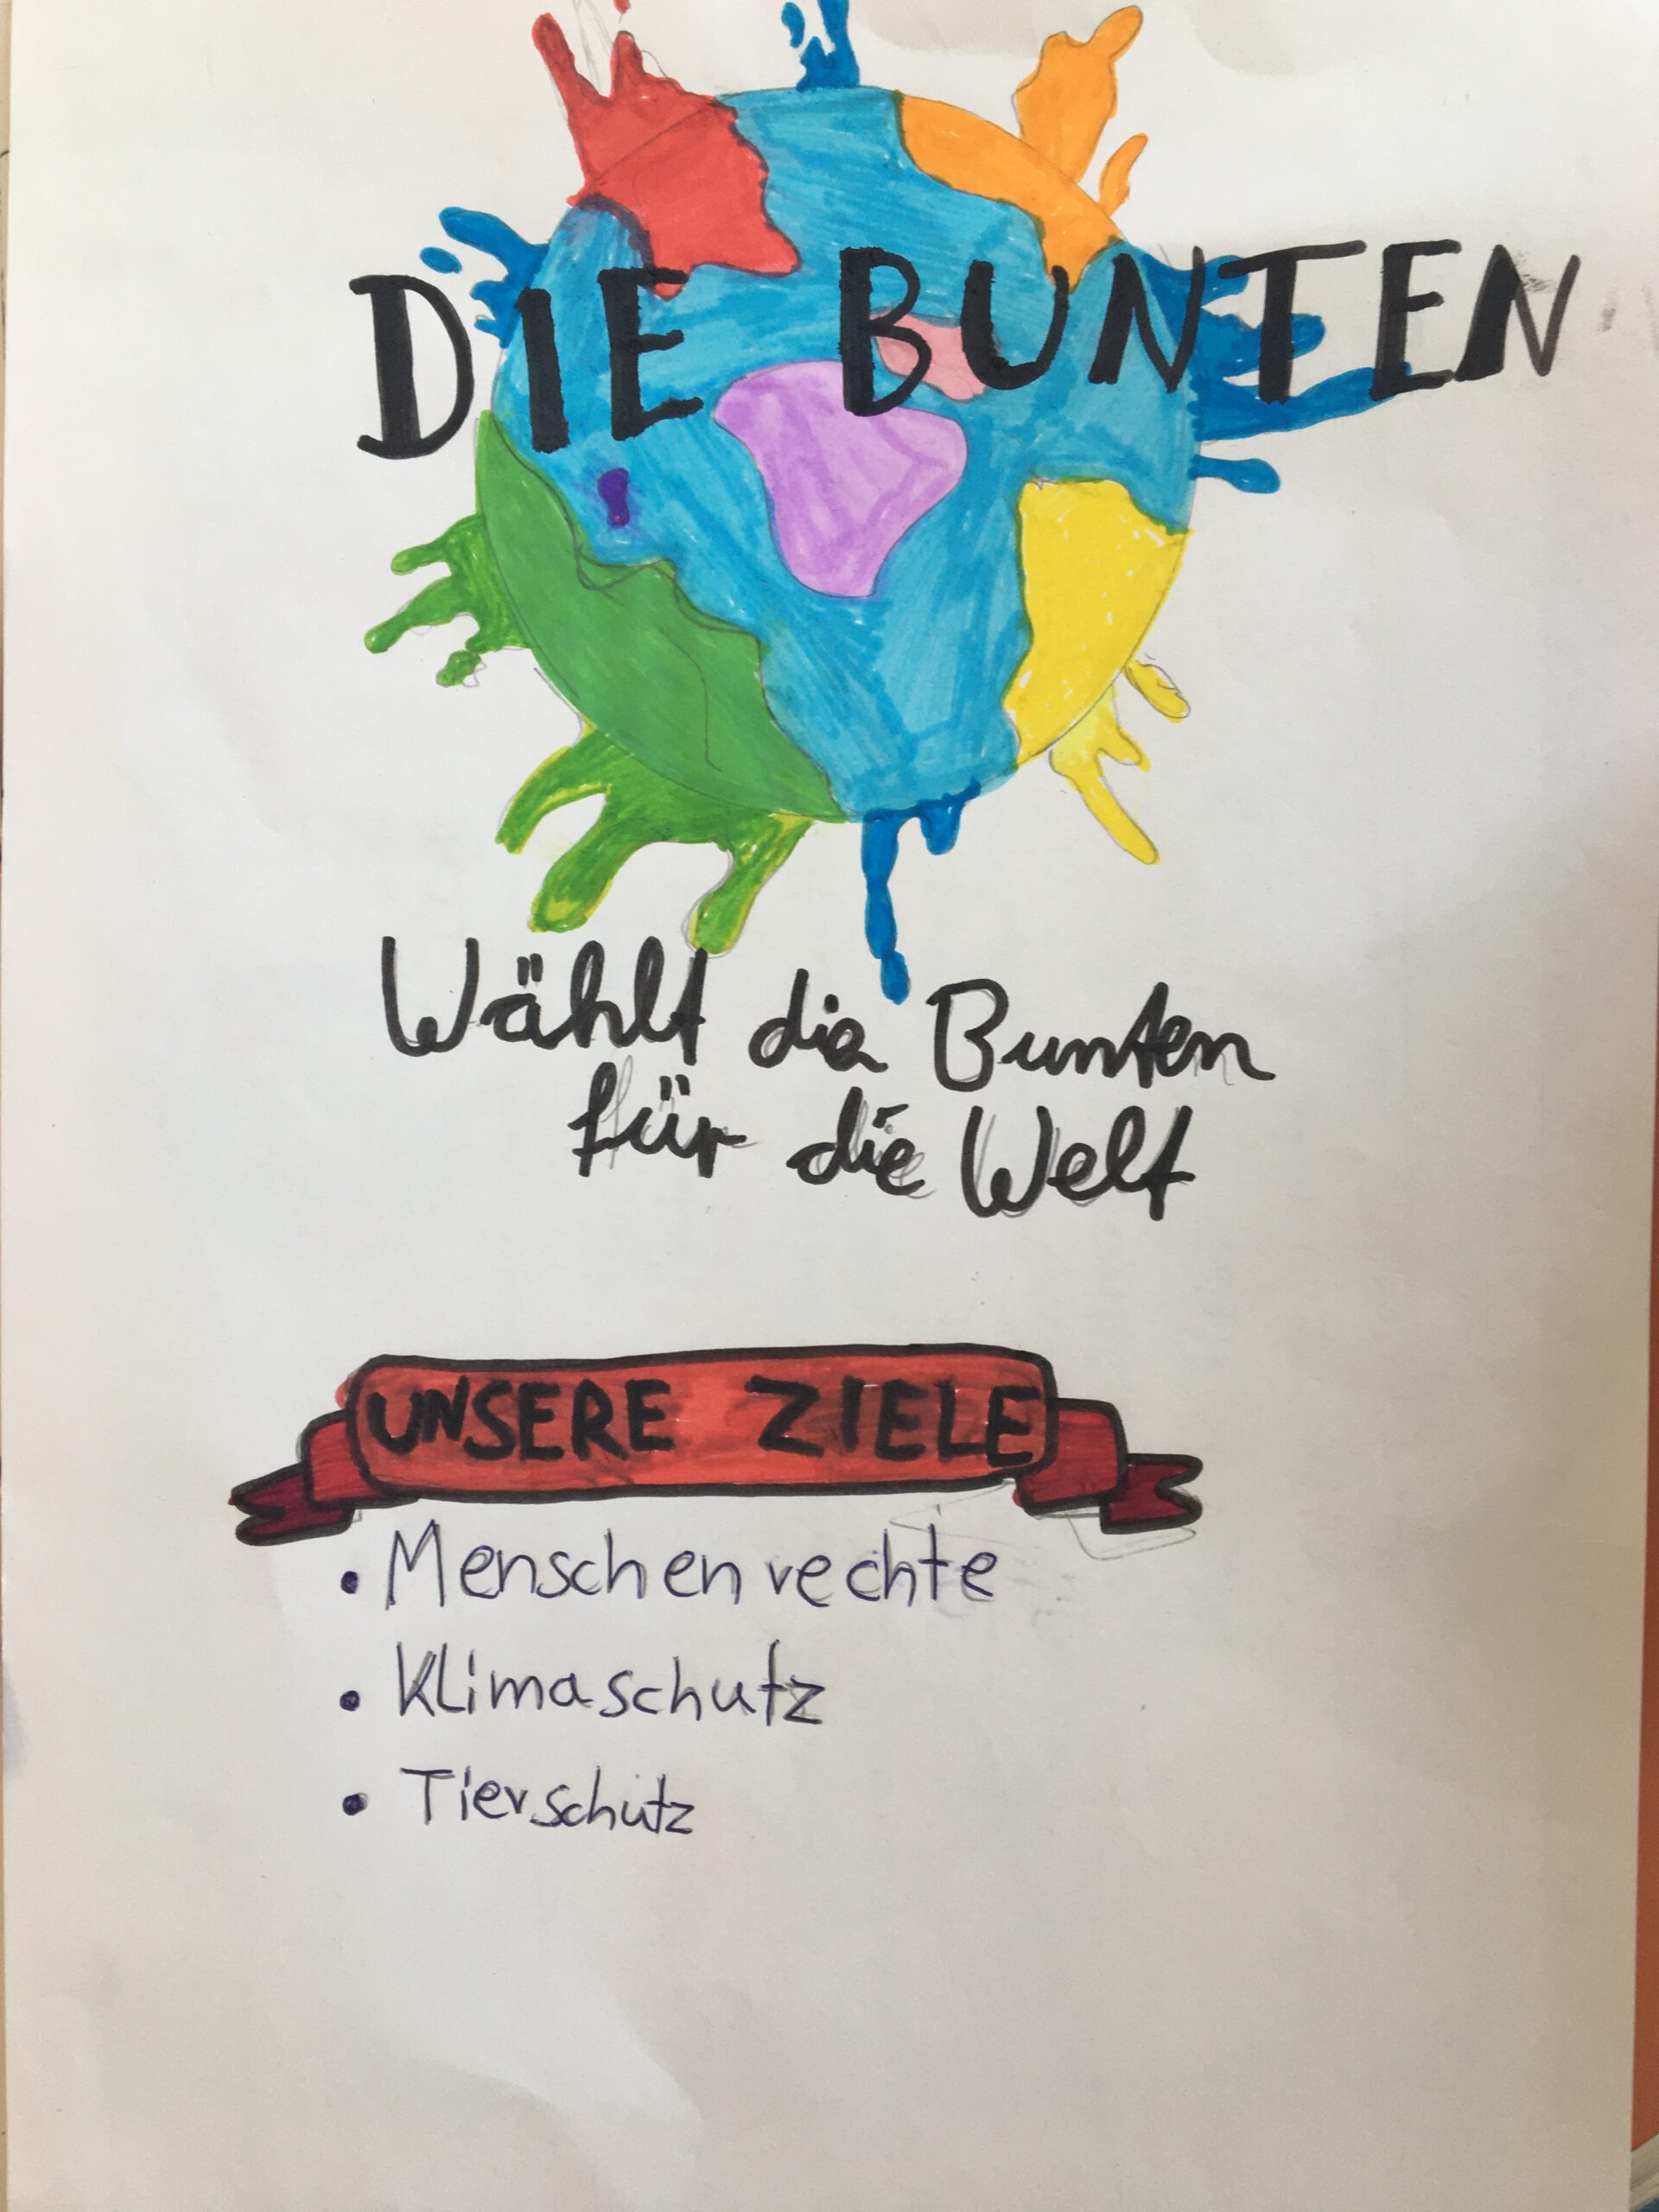 DIE BUNTEN
Wählt die Bunten
für die Welt
UNSERE ZIELE
• Menschenrechte
• Klimaschutz
• Tierschutz